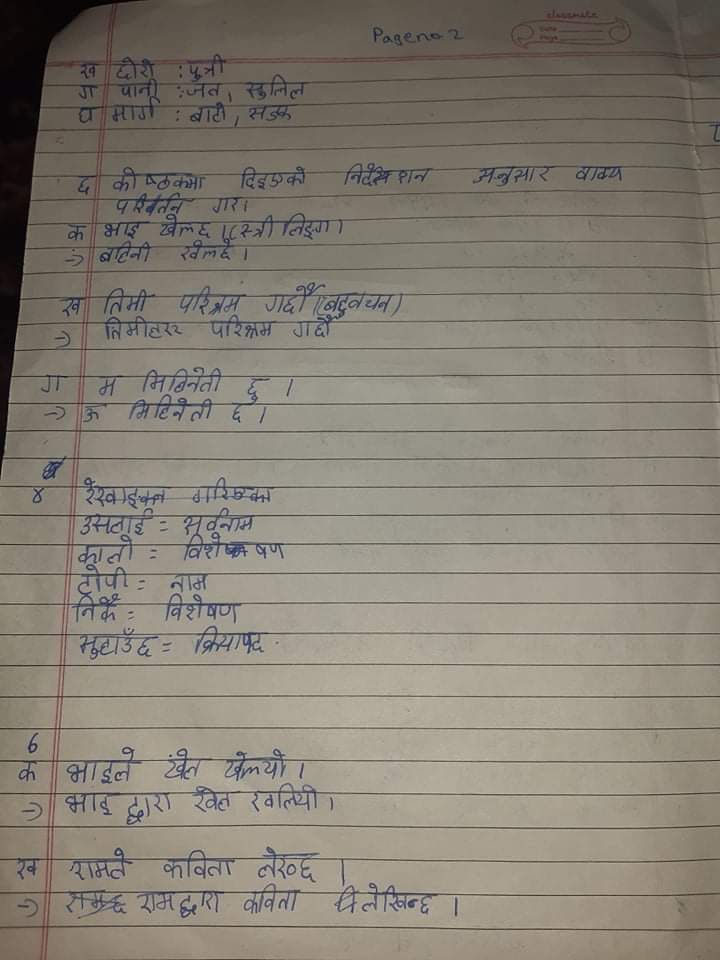 Pageno 2
classmate
Date
Page
ख छोरी : पुत्री
ग पानी : जल, सलिल
घ मार्ग : बाटो, सडक
६ कोष्ठकमा दिइएको निर्देशन अनुसार वाक्य
परिवर्तन गर।
क भाइ खेल्छ। (स्त्री लिङ्ग।
-> बहिनी खेल्छे।
ख तिमी परिश्रम गर्छौ (बहुवचन)
-> तिमीहरु परिश्रम गर्छौ
ग म मिहिनेती छु।
-> ऊ मिहिनेती छ।
४ रेखाङ्कन गरिएका
उसलाई = सर्वनाम
कालो = विशेषण
टोपी = नाम
निकै = विशेषण
सुहाउँछ = क्रियापद
6
क भाइले खेल खेल्यो।
-> भाइ द्वारा खेल खेलियो।
ख रामले कविता लेख्छ।
-> रामद्वारा कविता लेखिन्छ।